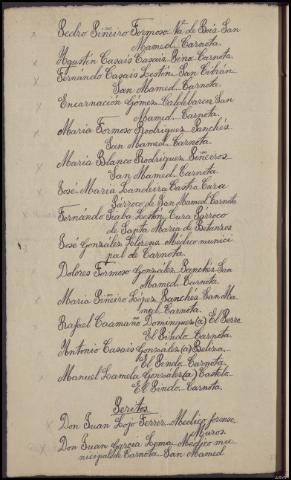 Pedro Piñeiro Formoso Na de Reis San
Mamed Carnota.
Agustín Casais Casais Pena Carnota.
Fernando Casais Lestón San Cibrán
San Mamed. Carnota.
Encarnación Gómez Caldebarcos San
Mamed. Carnota.
Maria Formoso Rodriguez Panchés
San Mamed. Carnota
Maria Blanco Rodriguez Piñeiros
San Mamed. Carnota
Jose Maria Landeira Casho Cura
Párroco de San Mamed. Carnota
Fernando Siaba Lestón, Cura Párroco
de Santa Maria de
José González Médico munici
pal de Carnota.
Dolores Formoso González Panchés San
Mamed. Carnota.
Maria Piñeiro López Panchés San Ma
med. Carnota.
Rafael Caamaño Dominguez (a) El Perra
El Pindo Carnota.
Antonio Casais Gonzalez (a)
El Pindo Carnota.
Manuel Lamela González (a)
El Pindo. Carnota.
Peritos
Don Juan Ferrer Medico forense
Muros
Don Juan Garcia Medico mu
nicipal de Carnota San Mamed